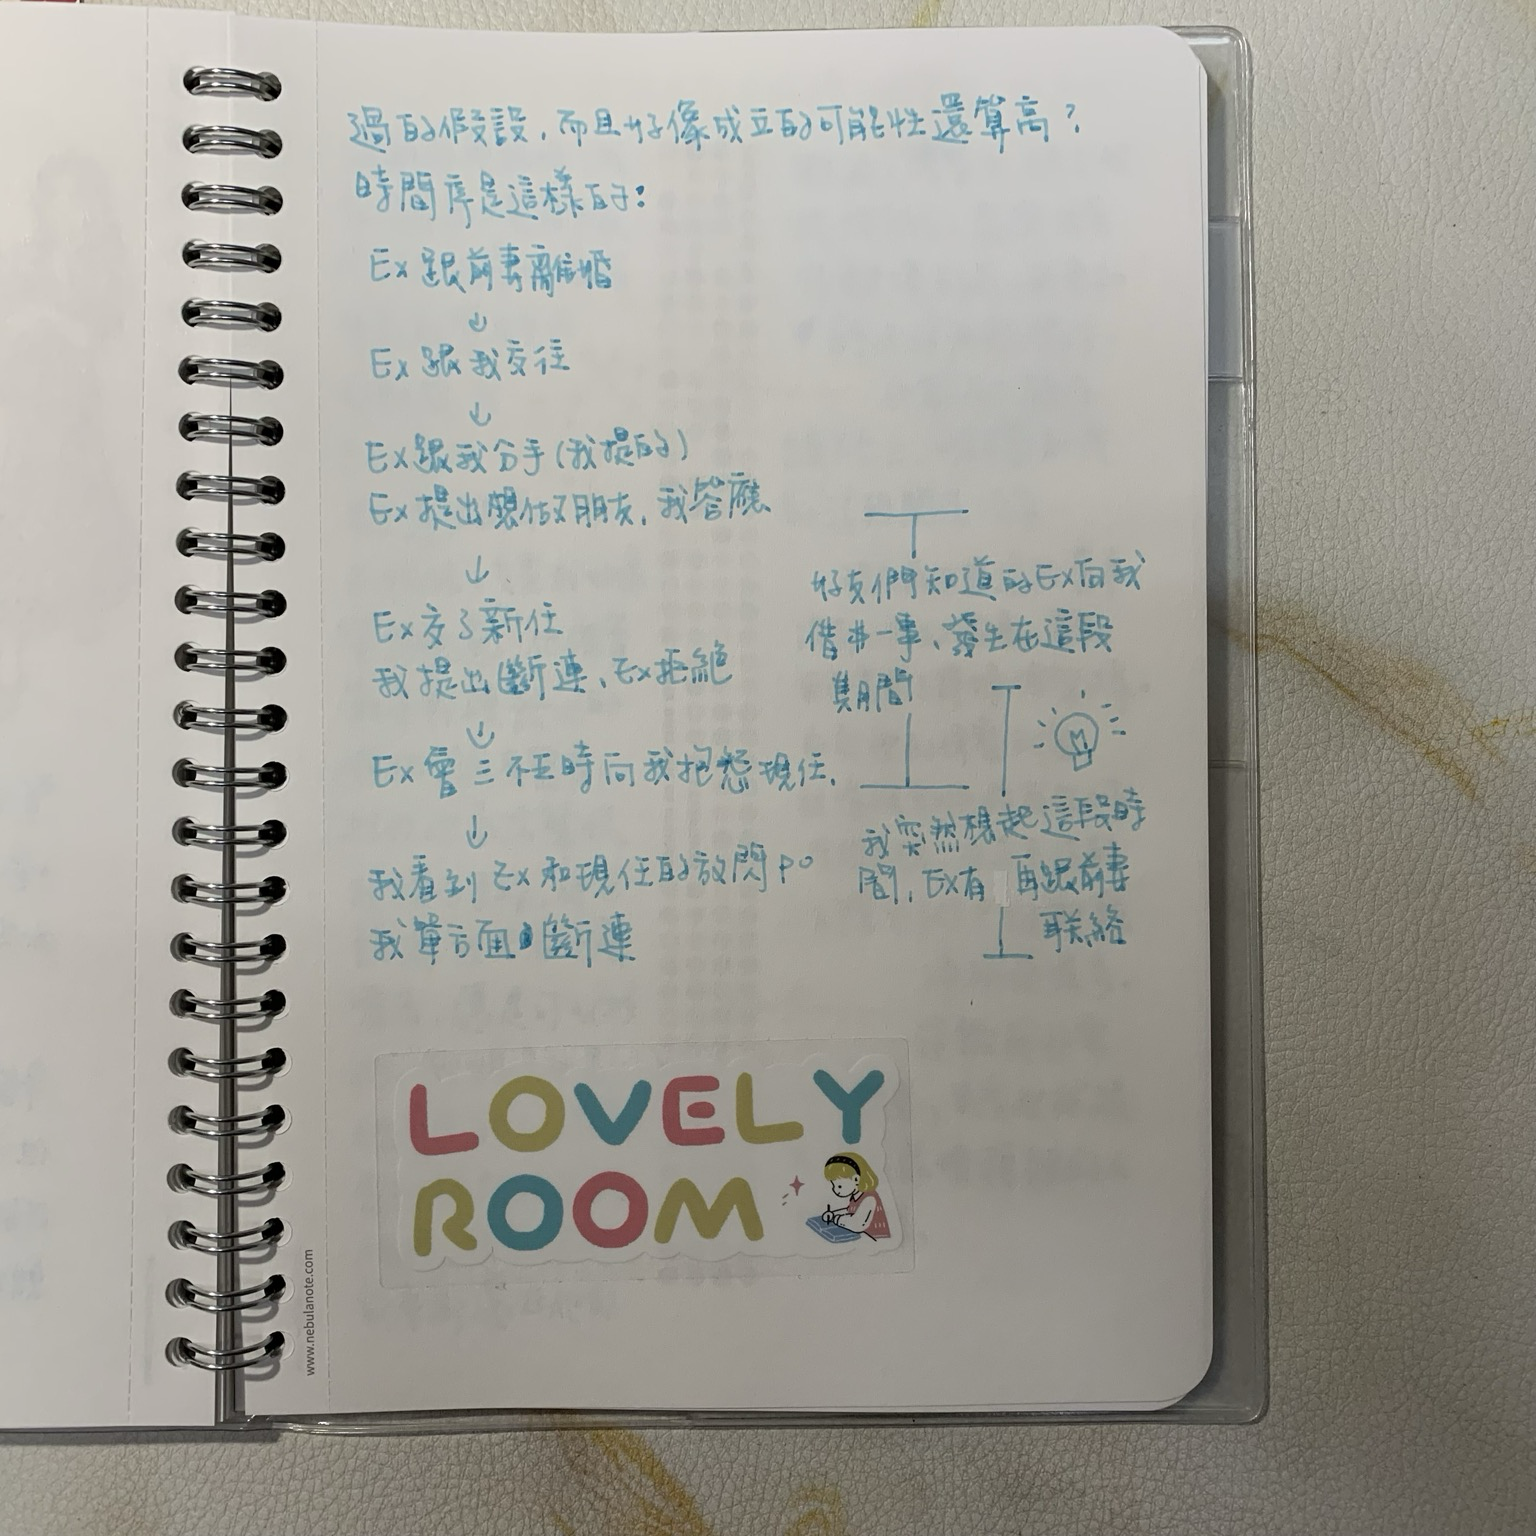 過的假設，而且好像成立的可能性還算高？
時間序是這樣的：
Ex 跟前妻離婚
↓
Ex 跟我交往
↓
Ex跟我分手(我提的)
Ex提出想做朋友，我答應
↓
Ex交了新任
我提出斷連、Ex拒絕
↓
Ex會三不五時向我抱怨現任、
↓
我看到Ex和現任的放閃po
我單方面斷連
好友們知道的Ex向我
借 一事、發生在這段
期間
我突然想起這段時
間，Ex有 再跟前妻
联絡
LOVELY
ROOM
www.nebulanote.com